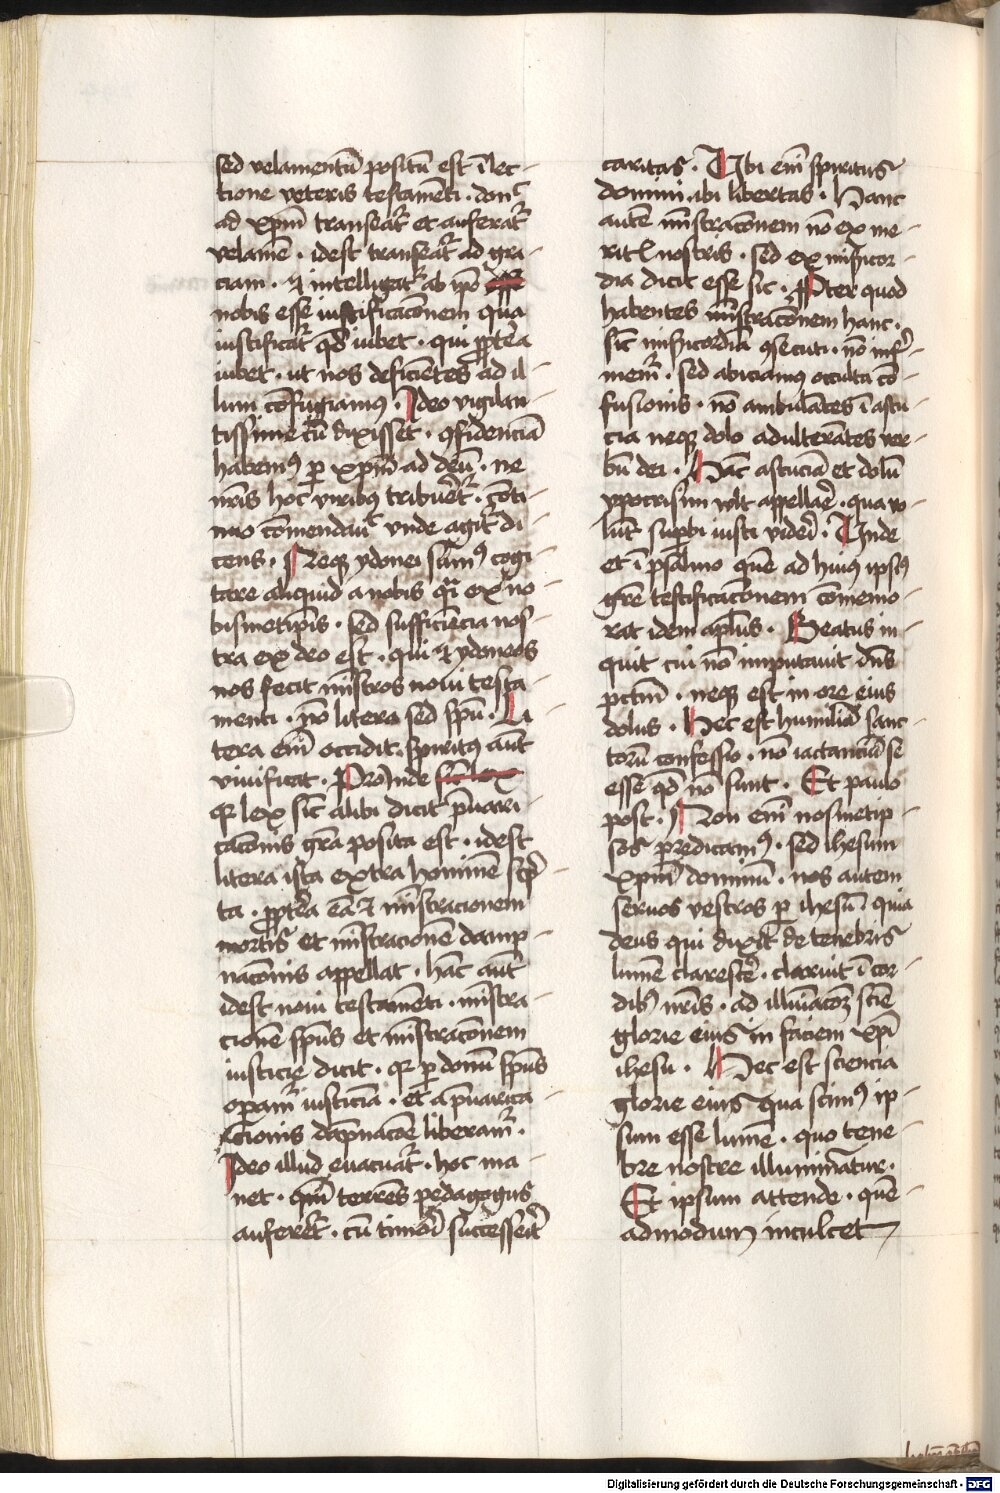 sed velamentū positū est ī lec-
tione veteris testamēti · donᶜ
ad xp̄m transeat᷑ et auferat᷑
velamē · idest transeat᷑ ad gra-
ciam · ⁊ intelligat᷑ ab ip̄o
nobis esse iustificac̄onem qua
iustificat᷑ qd̄ iubet · qui ꝓpt̄ea
iubet · ut nos deficiētes ad il-
lum cōfugiamꝰ · Ideo vigilan-
tissime cū dixisset · ꝯfidenciā
habemꝰ ꝑ xp̄m ad deū · ne
nr̄is hoc viribꝰ tribuet᷑ · cōti-
nuo cōmendauᶜ vnde agit᷑ di-
cens · Neqꝫ ydonei sumꝰ cogi-
tare aliquid a nobis q̄i ex no-
bismetip̄is · sed sufficiēcia nos-
tra ex deo est · qui ⁊ ydoneos
nos fecit mīstros noui testa-
menti · nō litera sed sp̄u · Li-
tera em̄ occidit · spiritꝰ aūt
viuificat · Proinde
qꝛ lex sic̄ alibi dicit p̄uari-
cac̄onis gr̄a posita est · idest
litera ista extra hominē sc̄p-
ta · ꝓpt̄ea eā ⁊ mīstracionem
mortis et mīstracionē damp-
nac̄onis appellat · hāc aūt
idest noui testamēti · mīstra-
cionē sp̄us et mīstrac̄onem
iusticie dicit · qꝛ ꝑ donū sp̄us
opam᷑ iusticiā · et a p̄uarica-
cionis dāpnac̄oe liberam᷑ ·
Ideo illud euacuat᷑ · hoc ma-
net · qm̄ terrēs pedagogus
auferet᷑ · cū timōi successeit
caritas · Ubi em̄ spiritus
domini ibi libertas · Hanc
autē mīstrac̄onem nō ex me-
ritꝭ nostris · sed ex mīsicor-
dia dicit esse sic · Ꝓpter quod
habentes mīstrac̄onem hanc ·
sic̄ mīsicordiā ꝯsecuti · nō infᵉ-
mem᷑ · sed abiciamꝰ occulta cō-
fusionis · nō ambulātes ī astu-
cia neqꝫ dolo adulterātes ver-
bū dei · Hāc astuciā et dolū
ypocrisim vlt appellae · qua vo-
lūt supbi iusti videi · Unde
et ī psalmo quē ad huiꝰ ipsiꝰ
gr̄e testificac̄onem cōmemo-
rat idem apl̄us · Beatus in-
quit cui nō imputauit dn̄s
pctm̄ · neqꝫ est in ore eius
dolus · Hec est humiliū sanc-
torū confessio · nō iactanciū se
esse qd̄ nō sunt · Et paulo
post · Non em̄ nosmetip-
sos p̄redicamꝰ · sed ihesum
xp̄m dominū · nos autem
seruos vestros ꝑ ihesū · quia
deus qui dixit de tenebris
lumē claresce · claruit ī cor-
dibꝰ nr̄is · ad illuīac̄oꝫ sciē
glorie eius in faciem xp̄i
ihesu · Hec est sciencia
glorie eius qua scimꝰ ip-
sum esse lumē · quo tene-
bre nostre illuminātur ·
Et ipsum attende · quē-
admodum inculcet
Digitalisierung gefördert durch die Deutsche Forschungsgemeinschaft - DFG